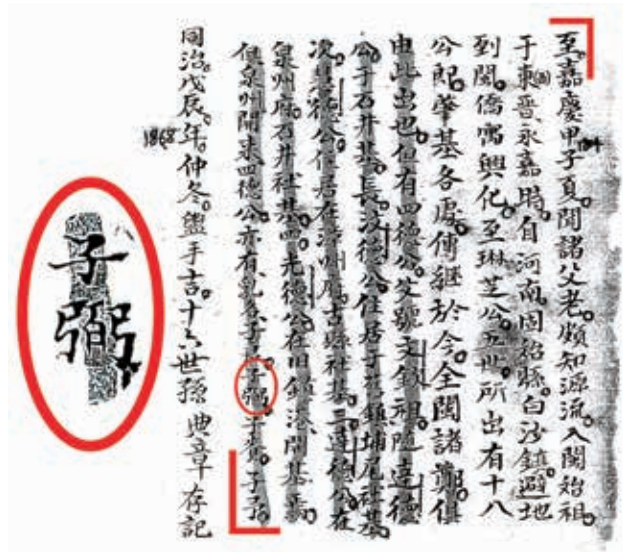 至嘉慶甲子夏聞諸父老頗知源流入閩始祖
于東晋永嘉時自河南固始縣白沙鎮避地
到閩僑寓興化至琳芝公五世所出有十八
公郎肇基各處傳繼於今全閩諸鄭俱
由此出也但有四德公父號文欽祖隨達德
公于石井基長波德公住居于旧鎮埔尾社基
次慧德公住居在漳州府古縣社基三達德公在
泉州府石井社基四光德公在旧鎮港開基焉
但泉州開來四德公亦有乳名子 子弼子賞子予
同治戊辰年仲冬盥手吉十六世孫典章存記
1868
子弼